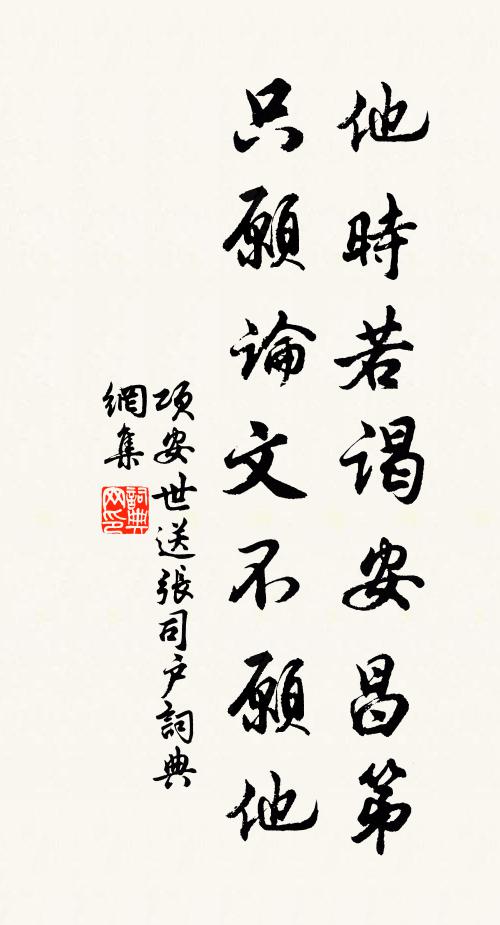 他時若谒安昌第
只願論文不願他
項安世送張司户詞典
網集
詞典
网印